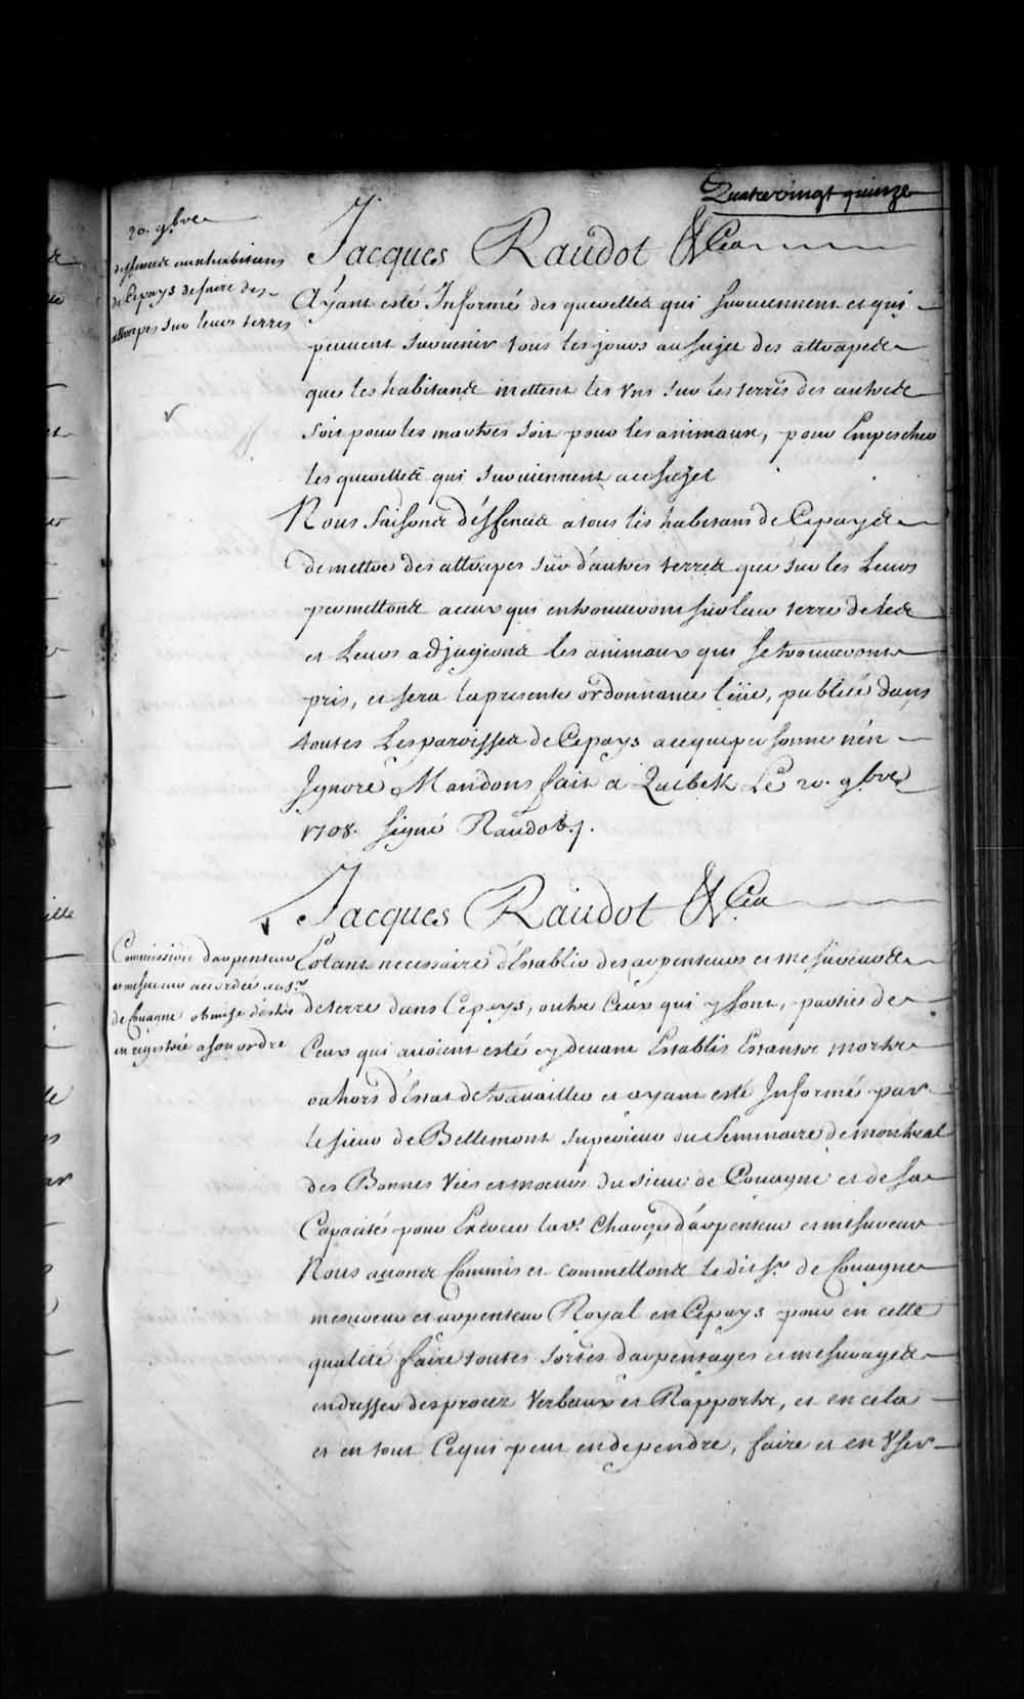 Quatrevingt quinze
20. 9.bre
deffence aux habitans
de Cepays de faire des
attrapes sur leurs terres
Jacques Raudot &Ca
Ayant esté Informé des querelles qui surviennent et qui
peuvent survenir tous les jours au sujet des attrapes
que les habitans mettent les Uns sur les terres des autres
soit pour les martres soit pour les animaux, pour Empescher
les querelles qui surviennent au sujet
Nous faisons déffences a tous les habitans de Cepays
de mettre des attrapes sur d'autres terres que sur les Leurs
permettons a ceux qui en trouveront sur leur terre de les
et Leurs adjugeons les animaux qui se trouveront
pris, et sera la presente ordonnance lüe, publiée dans
toutes Les paroisses de Cepays a ceque personne n'en
Ignore Mandons fait a Quebek Le 20. 9.bre
1708. signé Raudot ./.
Jacques Raudot &Ca
Commission d'arpenteur
et mesureur accordée au sr.
de Couagne
enregistrée a son ordre
Estant necessaire d'Establir des arpenteurs et mesureurs
de terre dans Cepays, outre Ceux qui y sont, partie de
Ceux qui avoient estés cy devant Establis Estant morts
ou hors d'Estat de travailler et ayant esté Informé par
le sieur de Bellemont superieur du Seminaire de montreal
des Bonnes Vies et moeurs du sieur de Couagne et de sa
Capacité pour Exercer lad. Charge d'arpenteur et mesureur
Nous avons Commis et commettons le dit sr. de Couagne
mesureur et arpenteur Royal en Cepays pour en cette
qualité faire toutes sortes d'arpentages et mesurages
en dresser des procez Verbaux et Rapports, et en cela
et en tout Cequi peut en dependre, faire et en User